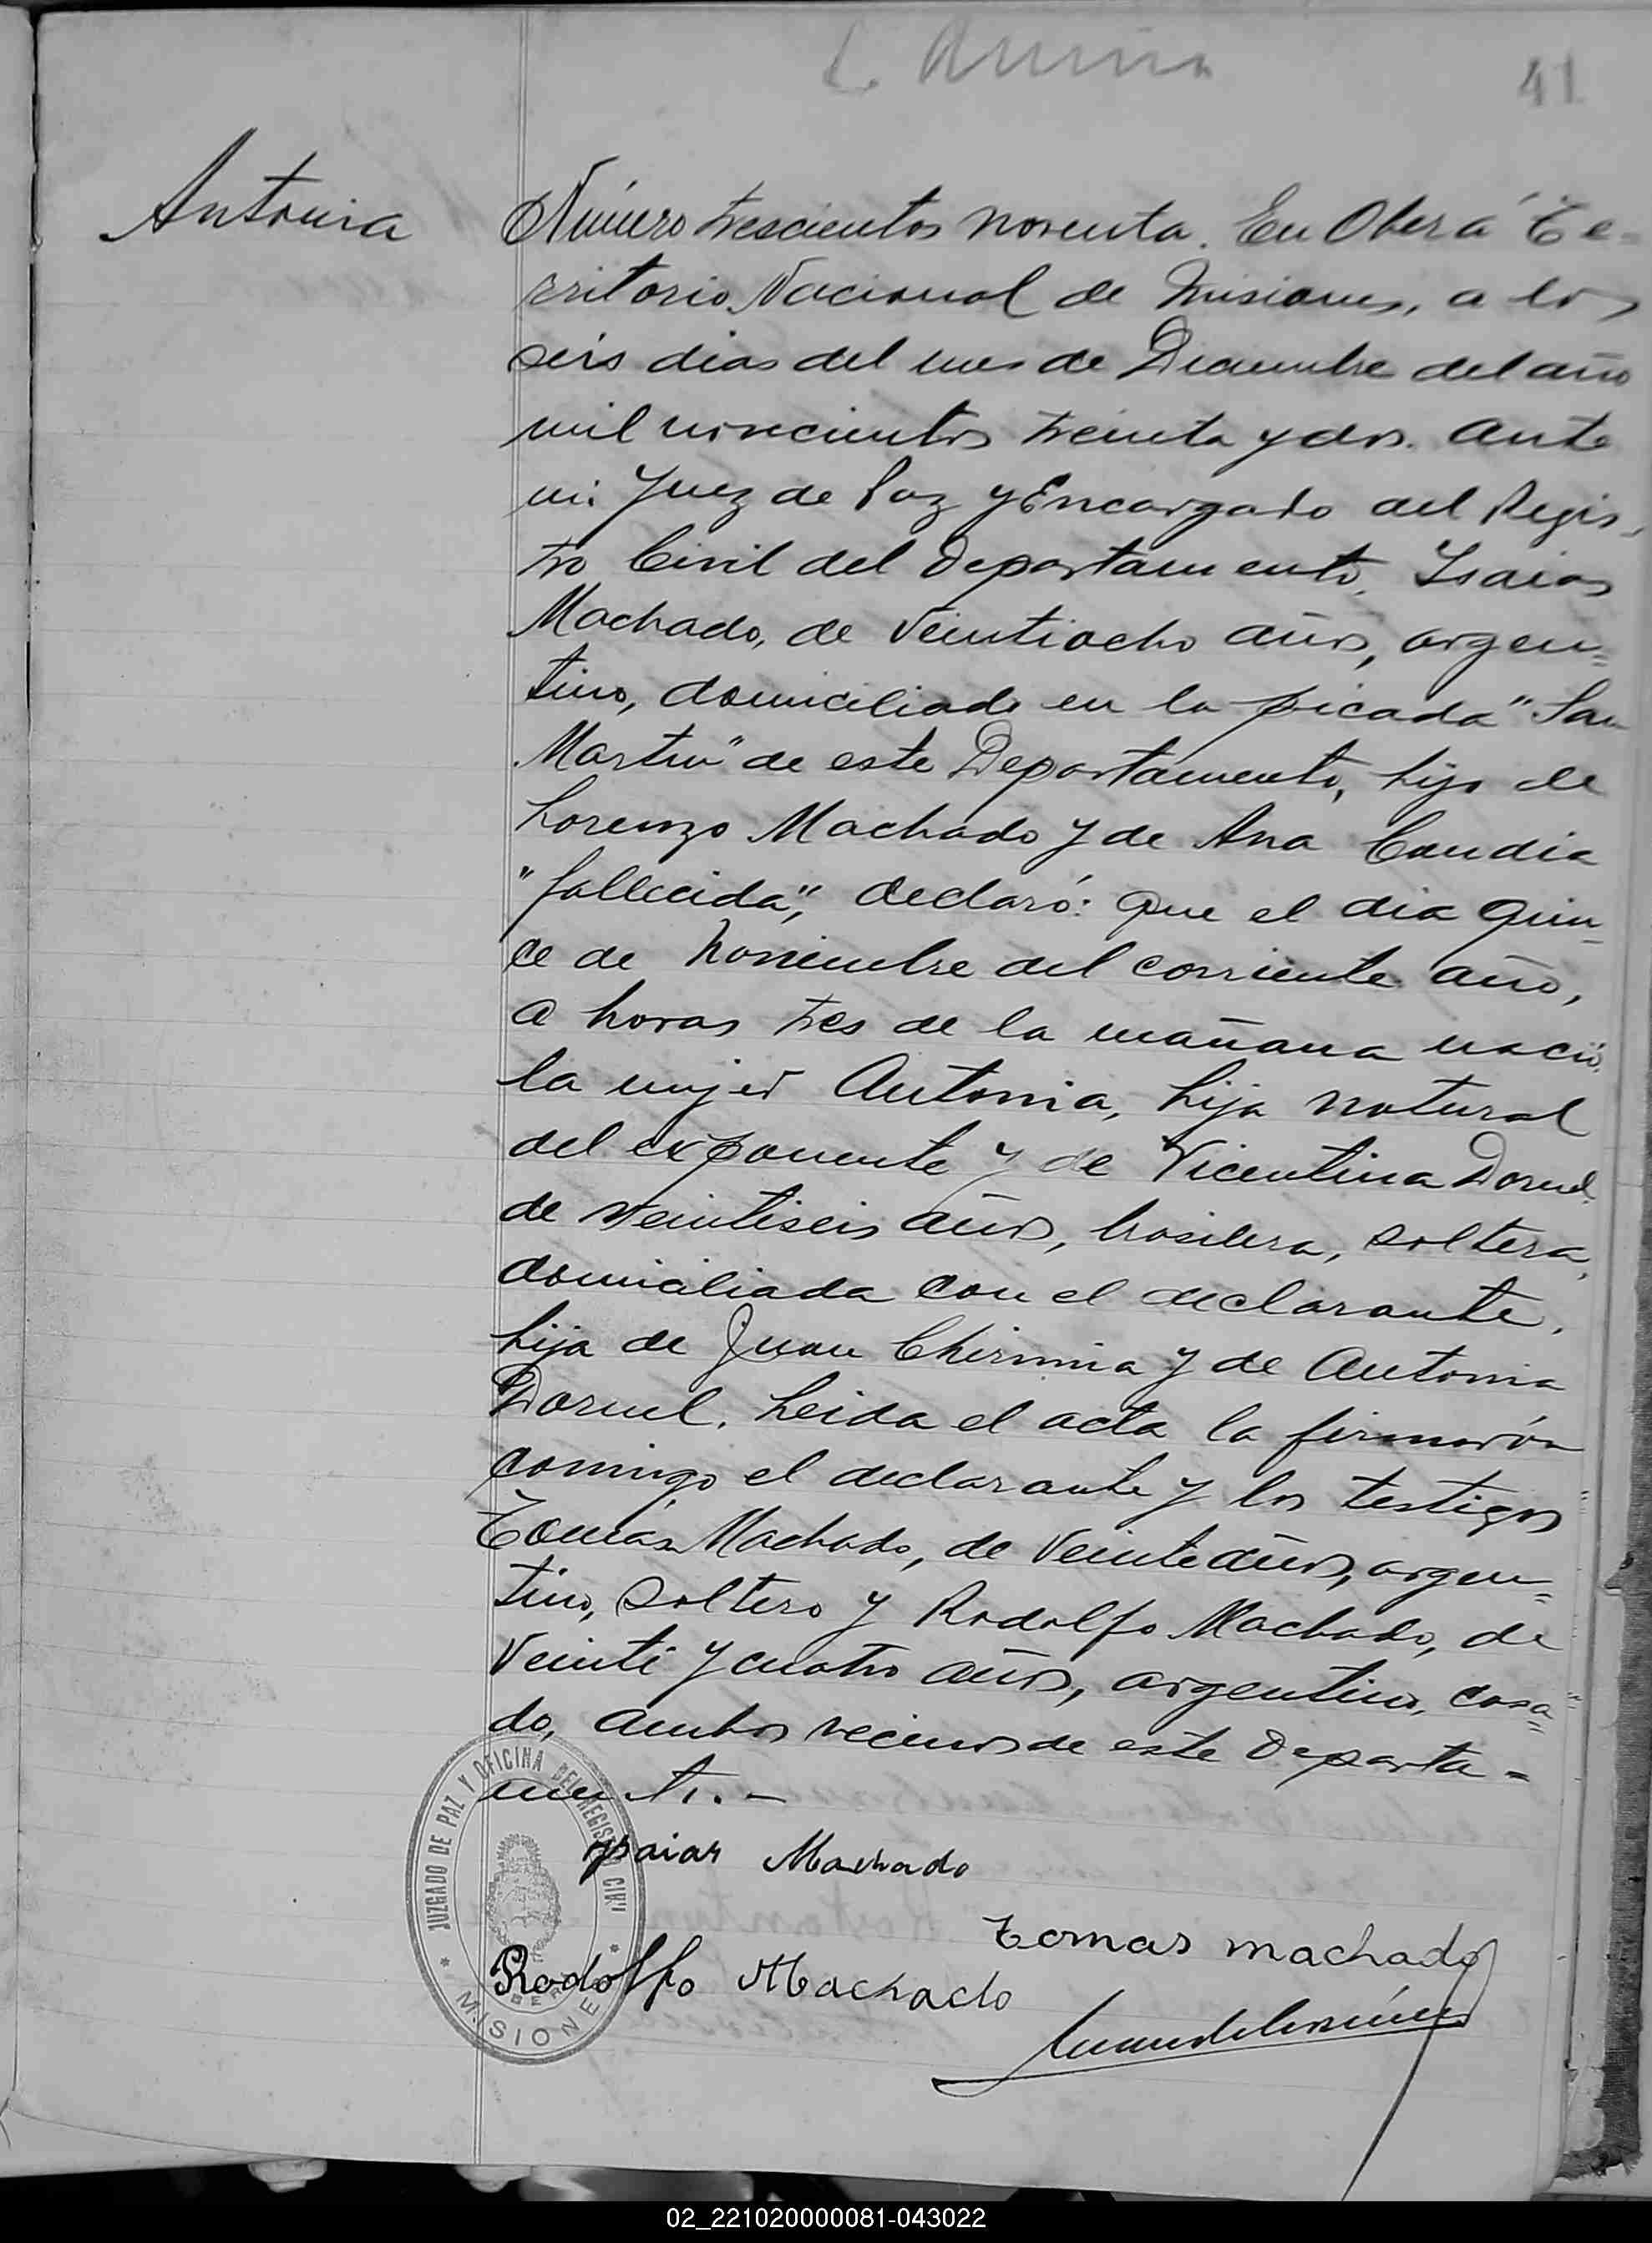 41
Antonia
Número trescientos noventa. En Oberá Te-
rritorio Nacional de Misiones, a los
seis dias del mes de Diciembre del año
mil novecientos treinta y dos. Ante
mi Juez de Paz y Encargado del Regis-
tro Civil del Departamento, Isaias
Machado, de veintiocho años, argen=
tino, domiciliado en la picada "San
Martin" de este Departamento, hijo de
Lorenzo Machado y de Ana Candia
"fallecida", declaró: Que el dia quin-
ce de Noviembre del corriente año,
a horas tres de la mañana nació
la mujer Antonia, hija natural
del exponente y de Vicentina Dornel
de veintiseis años, brasilera, soltera,
domiciliada con el declarante,
hija de Juan Chirimia y de Antonia
Dornel. Leida el acta la firmarón
comigo el declarante y los testigos
Tomás Machado, de veinte años, argen=
tino, soltero y Rodolfo Machado, de
veinti y cuatro años, argentino, casa=
do, ambos vecinos de este Departa=
mento.-
Isaias Machado
Tomas Machado
Rodolfo Machado
JUZGADO DE PAZ Y OFICINA DEL REGISTRO CIVIL
* MISIONES *
02_221020000081-043022